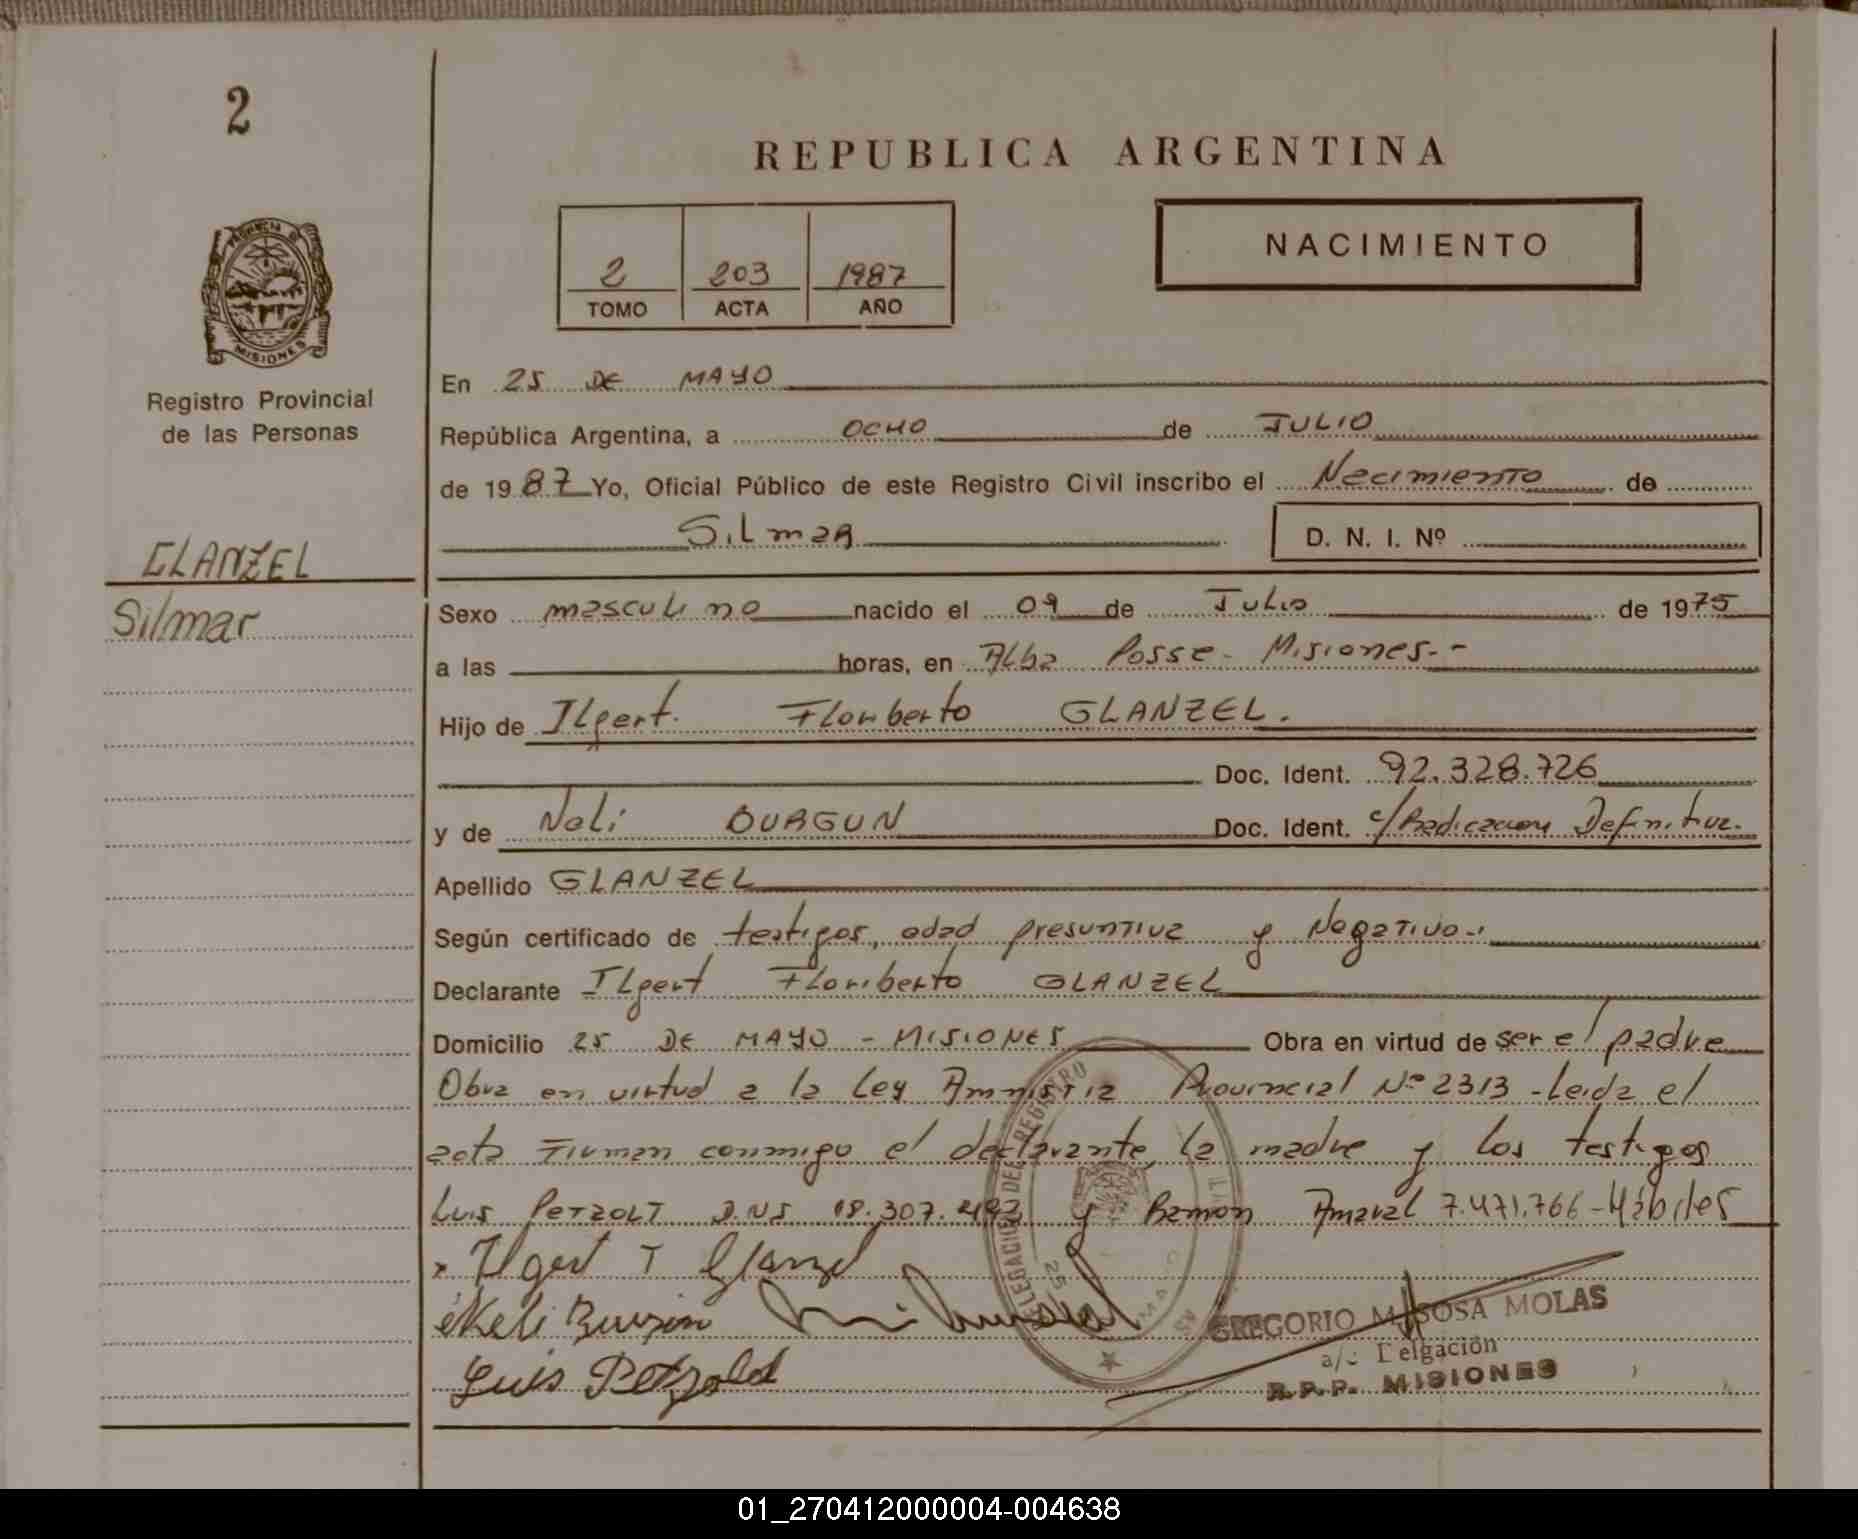 2
REPUBLICA ARGENTINA
2 203 1987
TOMO ACTA AÑO
NACIMIENTO
PROVINCIA DE
MISIONES
Registro Provincial
de las Personas
GLANZEL
Silmar
En 25 DE MAYO
República Argentina, a OCHO de JULIO
de 1987 Yo, Oficial Público de este Registro Civil inscribo el Nacimiento de
Silmar D. N. I. Nº
Sexo masculino nacido el 09 de Julio de 1975
a las horas, en Alba Posse - Misiones.-
Hijo de Ilgert Floriberto GLANZEL.
Doc. Ident. 92.328.726
y de Neli BURGUN Doc. Ident. c/Radicacion Definitiva.
Apellido GLANZEL
Según certificado de testigos, edad presuntiva y Negativo.-
Declarante Ilgert Floriberto GLANZEL
Domicilio 25 DE MAYO - MISIONES Obra en virtud de ser el padre
Obra en virtud a la Ley Amnistia Provincial Nº 2313 - Leida el
acta Firman conmigo el declarante, la madre y los testigos
Luis PETZOLT D.N.I 18.307. y Ramon Amaral 7.471.766 - Hábiles
x Ilgert F Glanzel
Neli Burgun
Luis Petzold
DELEGACION DEL REGISTRO
25
GREGORIO M. SOSA MOLAS
a/c Delgación
R.P.P. MISIONES
01_270412000004-004638